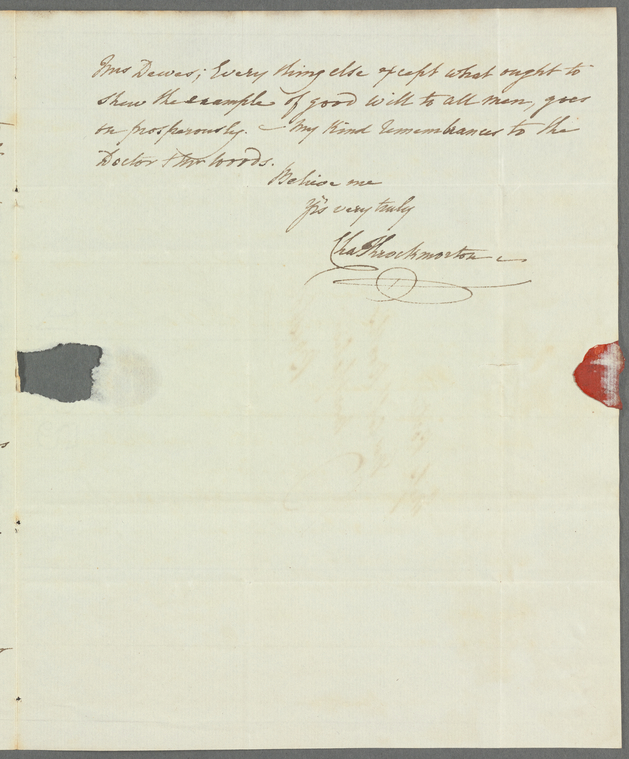 Mrs Dewes; Every thing else except what ought to
shew the example of good will to all men, goes
on prosperously. — My Kind remembrances to the
Doctor & Mr Woods.
Believe me
Yrs very truly
Chas Throckmorton